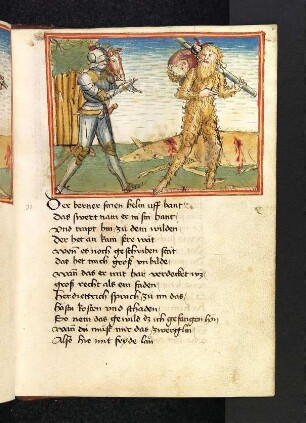 Der berner sinen helm uff bant
Das swert nam er in sin hant
Und trapt hin zu dem wilden
Der het an kain sere wat
Wenn es noch geschriben stat
das het mich groß unbilde
Wan das er mit har verdecket wz
groß recht als ein
Her diettrich sprach zu im das
hastu kosten und schaden
So nem das gewild dz ich gefangen hon
wan du must mir das zwerglin
Alhie mit fryde lan